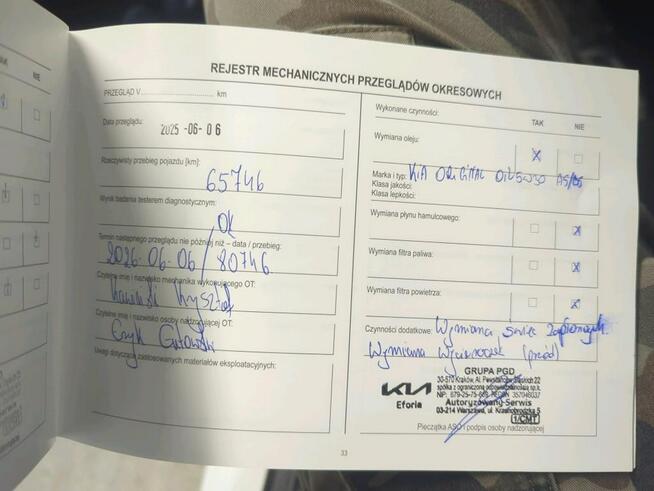 TAK
NIE
REJESTR MECHANICZNYCH PRZEGLĄDÓW OKRESOWYCH
PRZEGLĄD V.................................. km
Data przeglądu:
2025 -06- 06
Rzeczywisty przebieg pojazdu [km]:
65746
Wynik badania testerem diagnostycznym:
OK
Termin następnego przeglądu nie później niż – data / przebieg:
2026-06-06 / 80746
Czytelne imię i nazwisko mechanika wykonującego OT:
Czytelne imię i nazwisko osoby nadzorującej OT:
Eryk
Uwagi dotyczące zastosowanych materiałów eksploatacyjnych:
Wykonane czynności:
TAK NIE
Wymiana oleju:
X
Marka i typ: KIA ORIGINAL OIL 5W30
Klasa jakości:
Klasa lepkości:
Wymiana płynu hamulcowego:
X
Wymiana filtra paliwa:
X
Wymiana filtra powietrza:
X
Czynności dodatkowe: Wymiana świec zapłonowych
Wymiana Wycieraczek (przód)
GRUPA PGD
30-570 Kraków, Al. Powstańców Śląskich 22
spółka z ograniczoną odpowiedzialnością sp.k.
KIA
Eforia
Autoryzowany Serwis
03-214 Warszawa, ul. Krasnobrodzka 5
1/CMT
Pieczątka ASO i podpis osoby nadzorującej
33